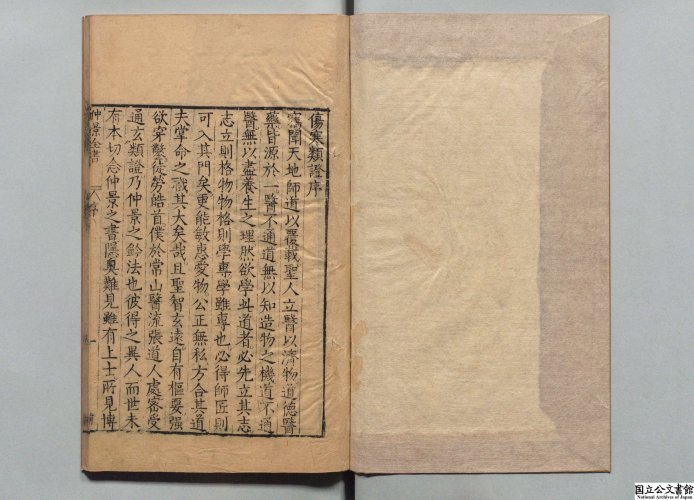 傷寒類證序
竊聞天地師道以覆載聖人立醫以濟物道德醫
藥皆源於一醫不通道無以知造物之機道不通
醫無以盡養生之理然欲學此道者必先立其志
志立則格物物格則學專學雖專也必得師匠則
可入其門矣更能敏惠愛物公正無私方合其道
夫掌命之職其大矣哉且聖智玄遠自有樞要強
欲穿鑿徒勞皓首僕於常山醫流張道人處密受
通玄類證乃仲景之鈐法也彼得之異人而世未
有本切念仲景之書隱奧難見雖有上士所見博
仲景全書 序 一
国立公文書館
National Archives of Japan